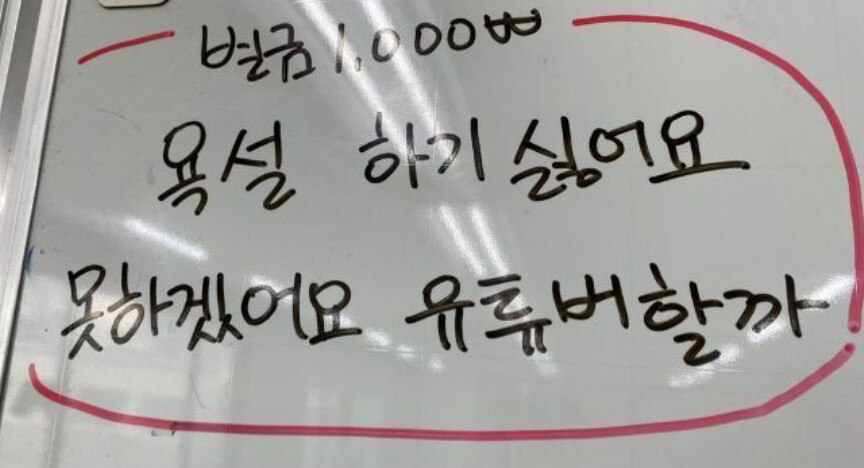 벌금 1,000₩
욕설 하기 싫어요
못하겠어요 유튜버할까